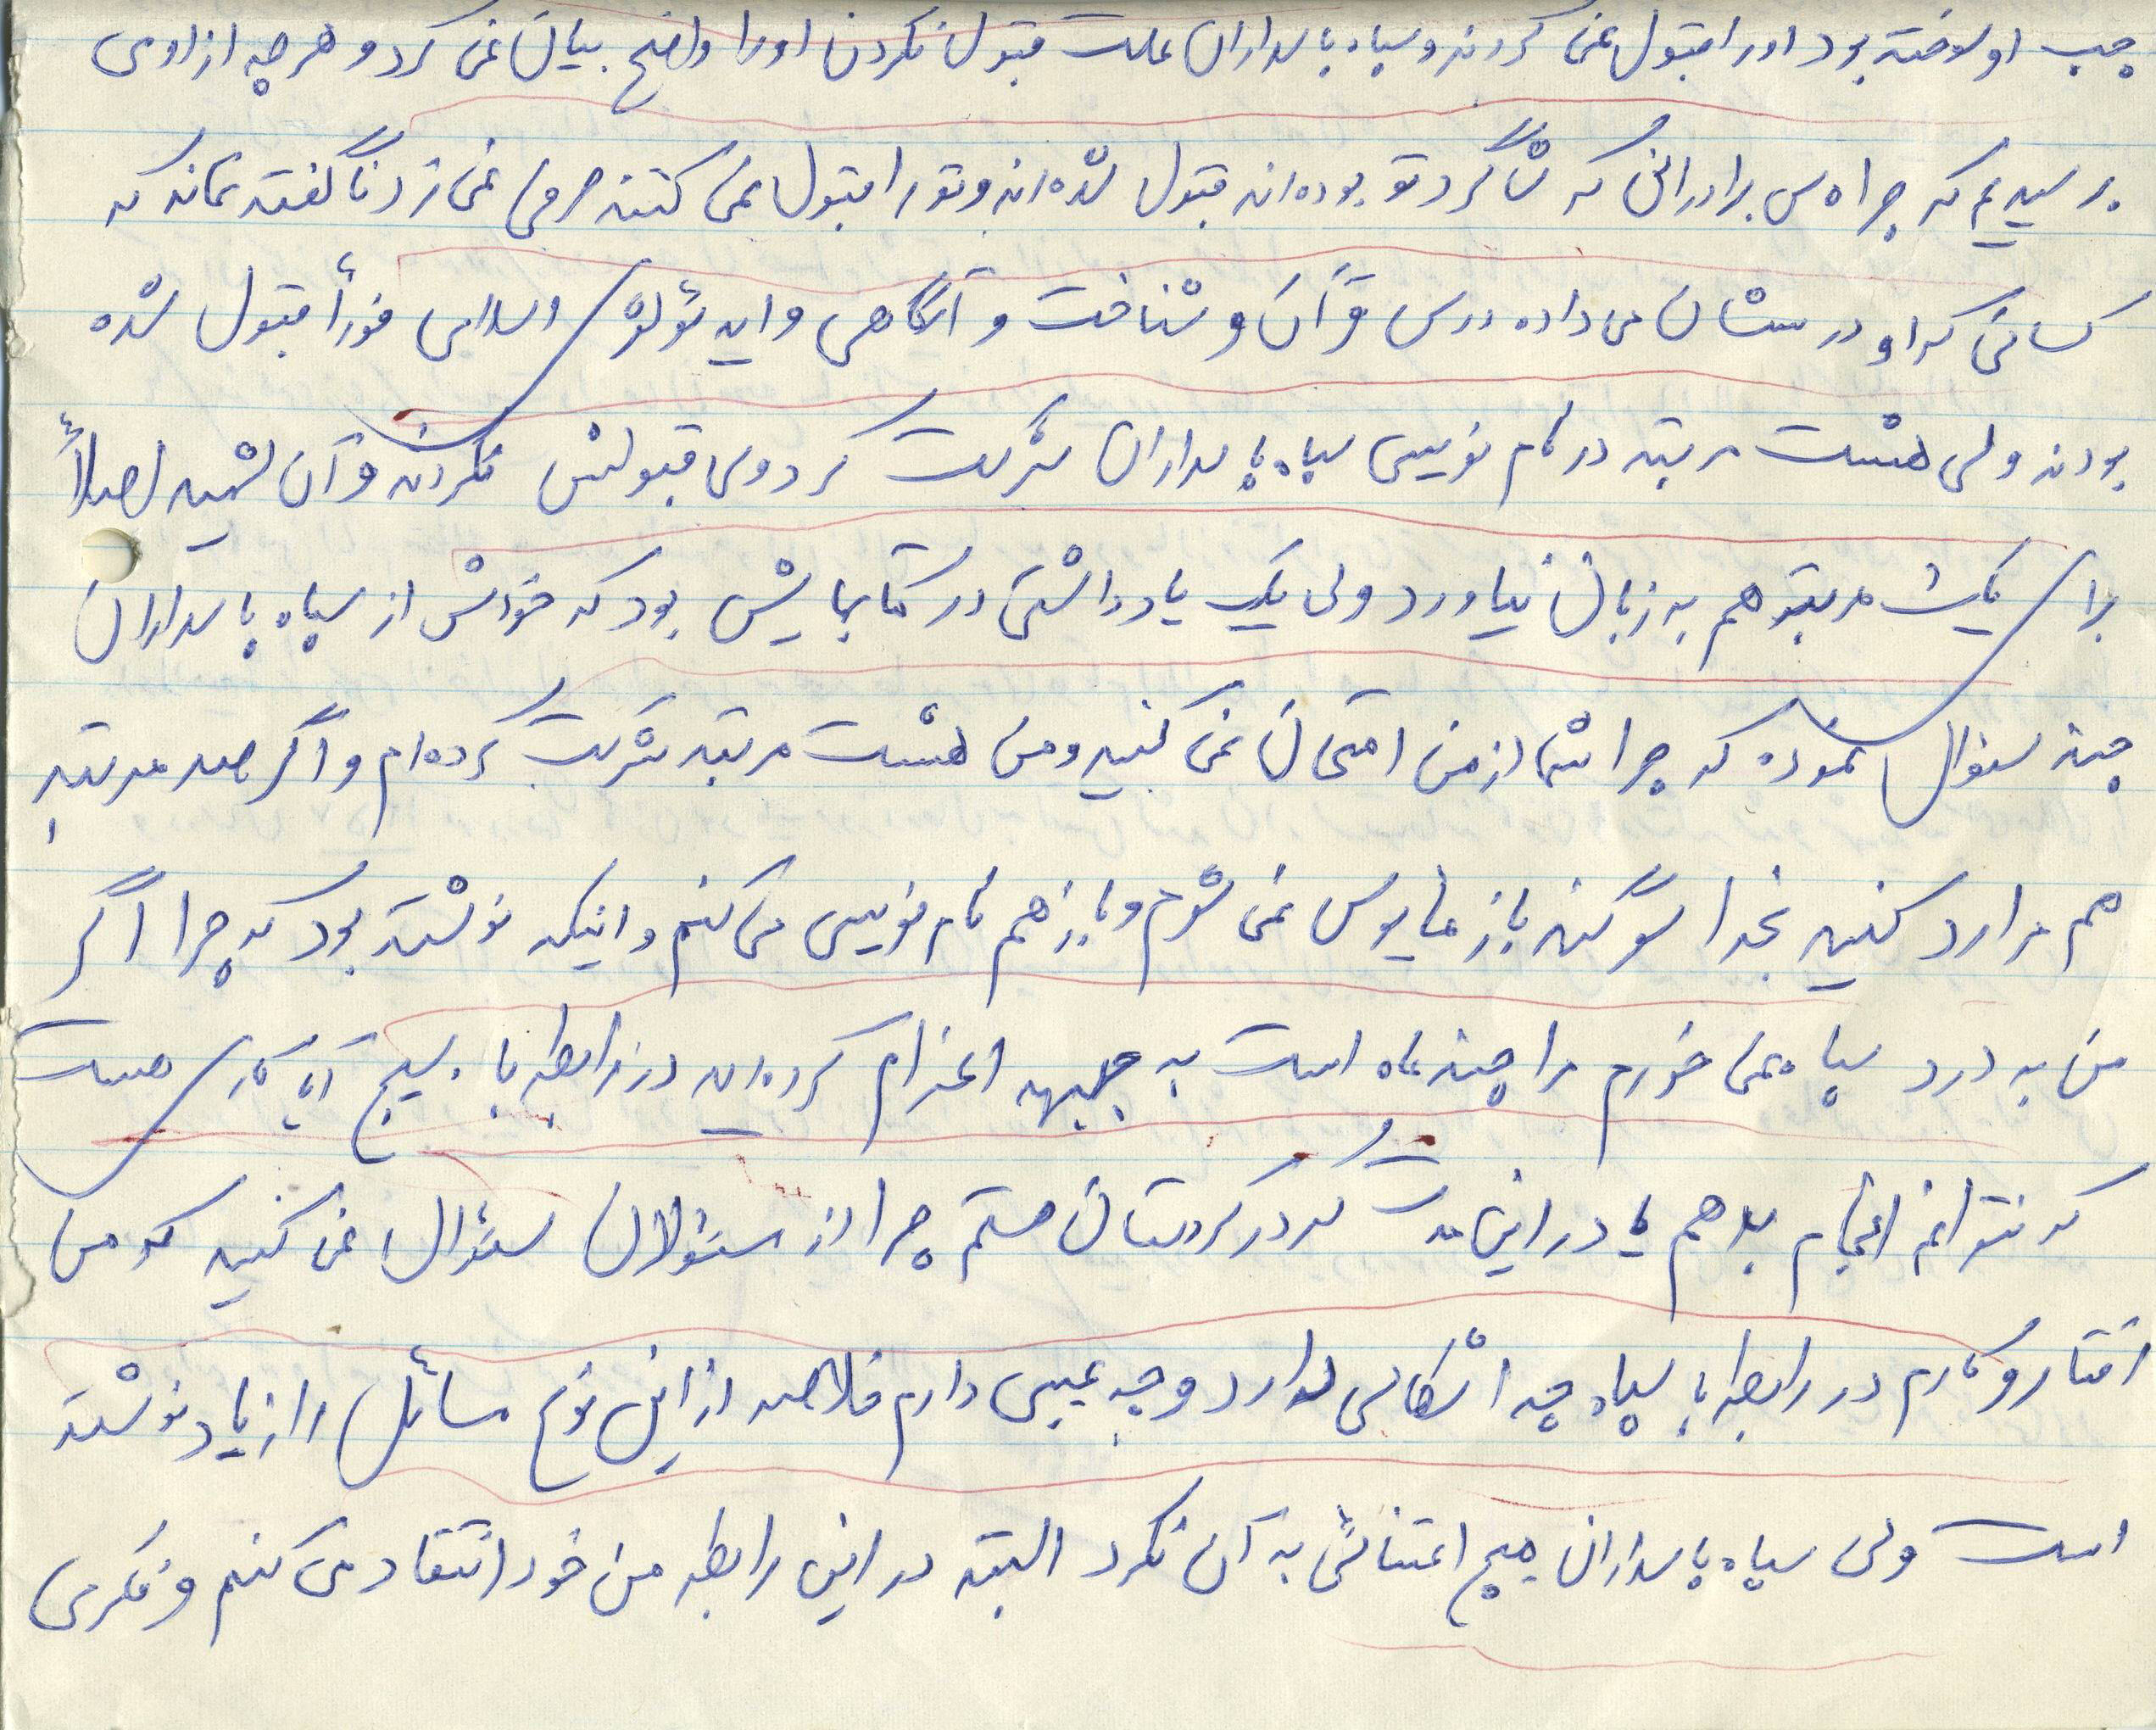 چپ او سوخته بود او را قبول نمی کردند و سپاه پاسداران علت قبول نکردن او را واضح بیان نمی کرد و هر چه از او می
پرسیدیم که چرا پس برادرانی که شاگرد تو بوده اند قبول شده اند و تو را قبول نمی کنند حرفی نمی زد ناگفته نماند که
کسانی که او درسشان می داده درس قرآن و شناخت و آگاهی و ایدئولوژی اسلامی فوراً قبول شده
بودند ولی هشت مرتبه در نام نویسی سپاه پاسداران شرکت کرد ولی قبولش نکردند و آن شهید اصلاً
برای یک مرتبه هم به زبان نیاورد ولی یک یادداشتی در کتابهایش بود که خودش از سپاه پاسداران
چند سئوال نموده که چرا شما از من امتحان نمی کنید و من هشت مرتبه شرکت کرده ام و اگر صد مرتبه
هم مرا رد کنید بخدا سوگند باز مایوس نمی شوم و باز هم نام نویسی می کنم و اینکه نوشته بود که چرا اگر
من به درد سپاه نمی خورم مرا چند ماه است به جبهه اعزام کرده اید در رابطه با بسیج آیا کاری هست
که نتوانم انجام بدهم یا در این مدت که در کردستان هستم چرا از مسئولان سئوال نمی کنید که من
رفتار و کارم در رابطه با سپاه چه اشکالی دارد و چه عیبی دارم خلاصه از این نوع مسائل را زیاد نوشته
است ولی سپاه پاسداران هیچ اعتنائی به آن نکرد البته در این رابطه من خود انتقاد می کنم و فکر می